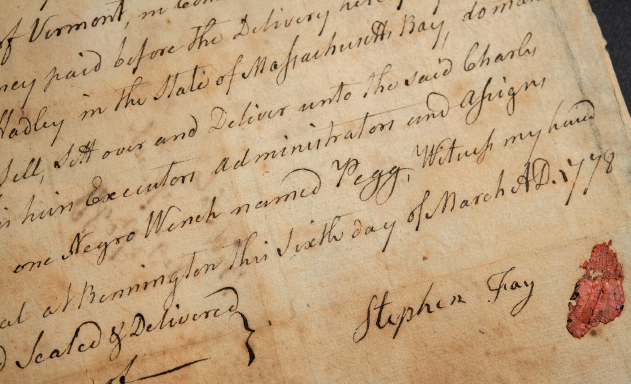 of Vermont, in Con
ney paid before the Delivery here
Hadley in the State of Massachusetts Bay, do man
Sell, Sett over and Deliver unto the said Charles
his heirs Executors administrators and Assigns
one Negro Wench named Pegg, Witness my hand
eal at Bennington this Sixth day of March AD. 1778
d Sealed & Delivered }
of
Stephen Fay